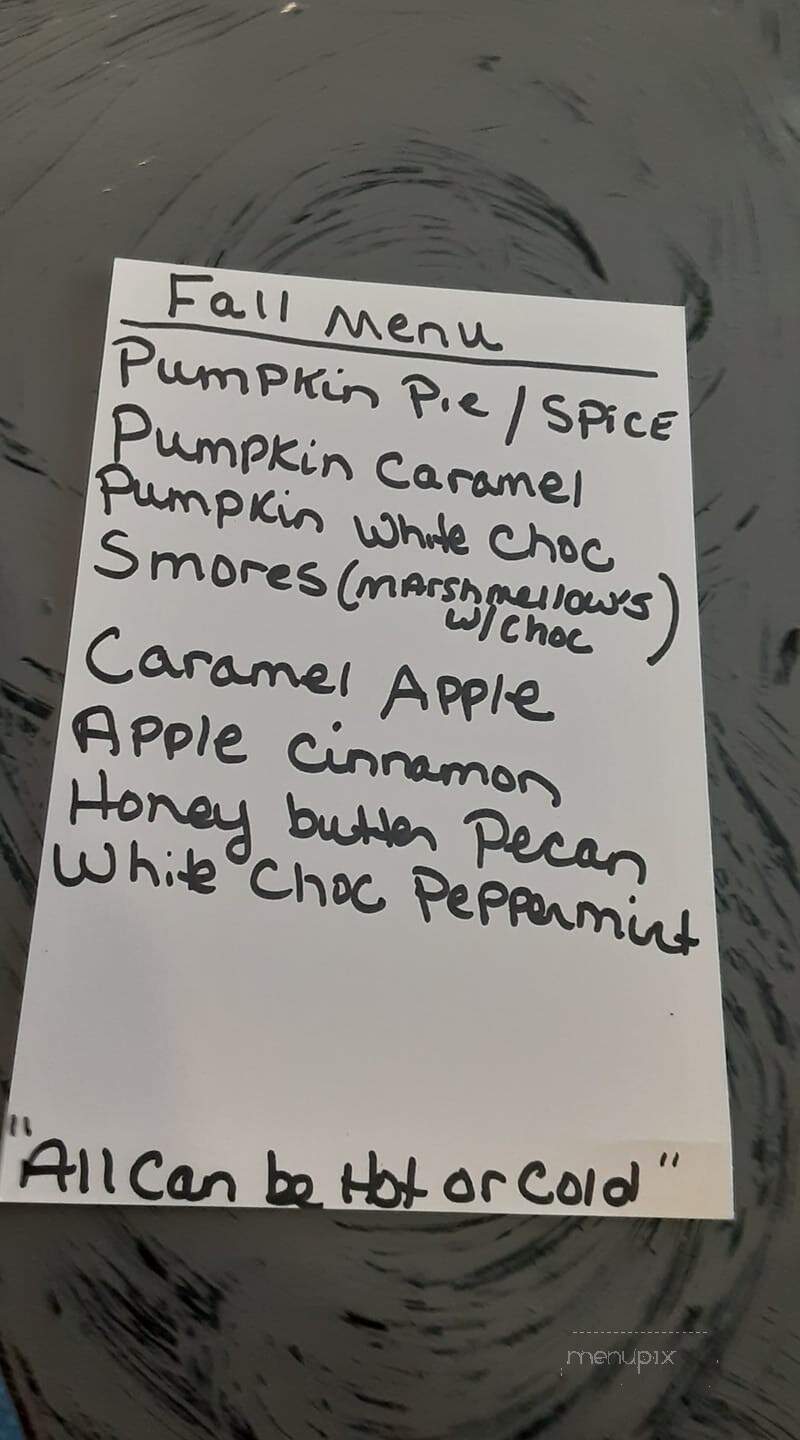 Fall Menu
Pumpkin Pie / Spice
Pumpkin Caramel
Pumpkin White Choc
Smores (Marshmellows
w/ Choc)
Caramel Apple
Apple Cinnamon
Honey butter Pecan
White Choc Peppermint
"All Can be Hot or Cold"
menupix